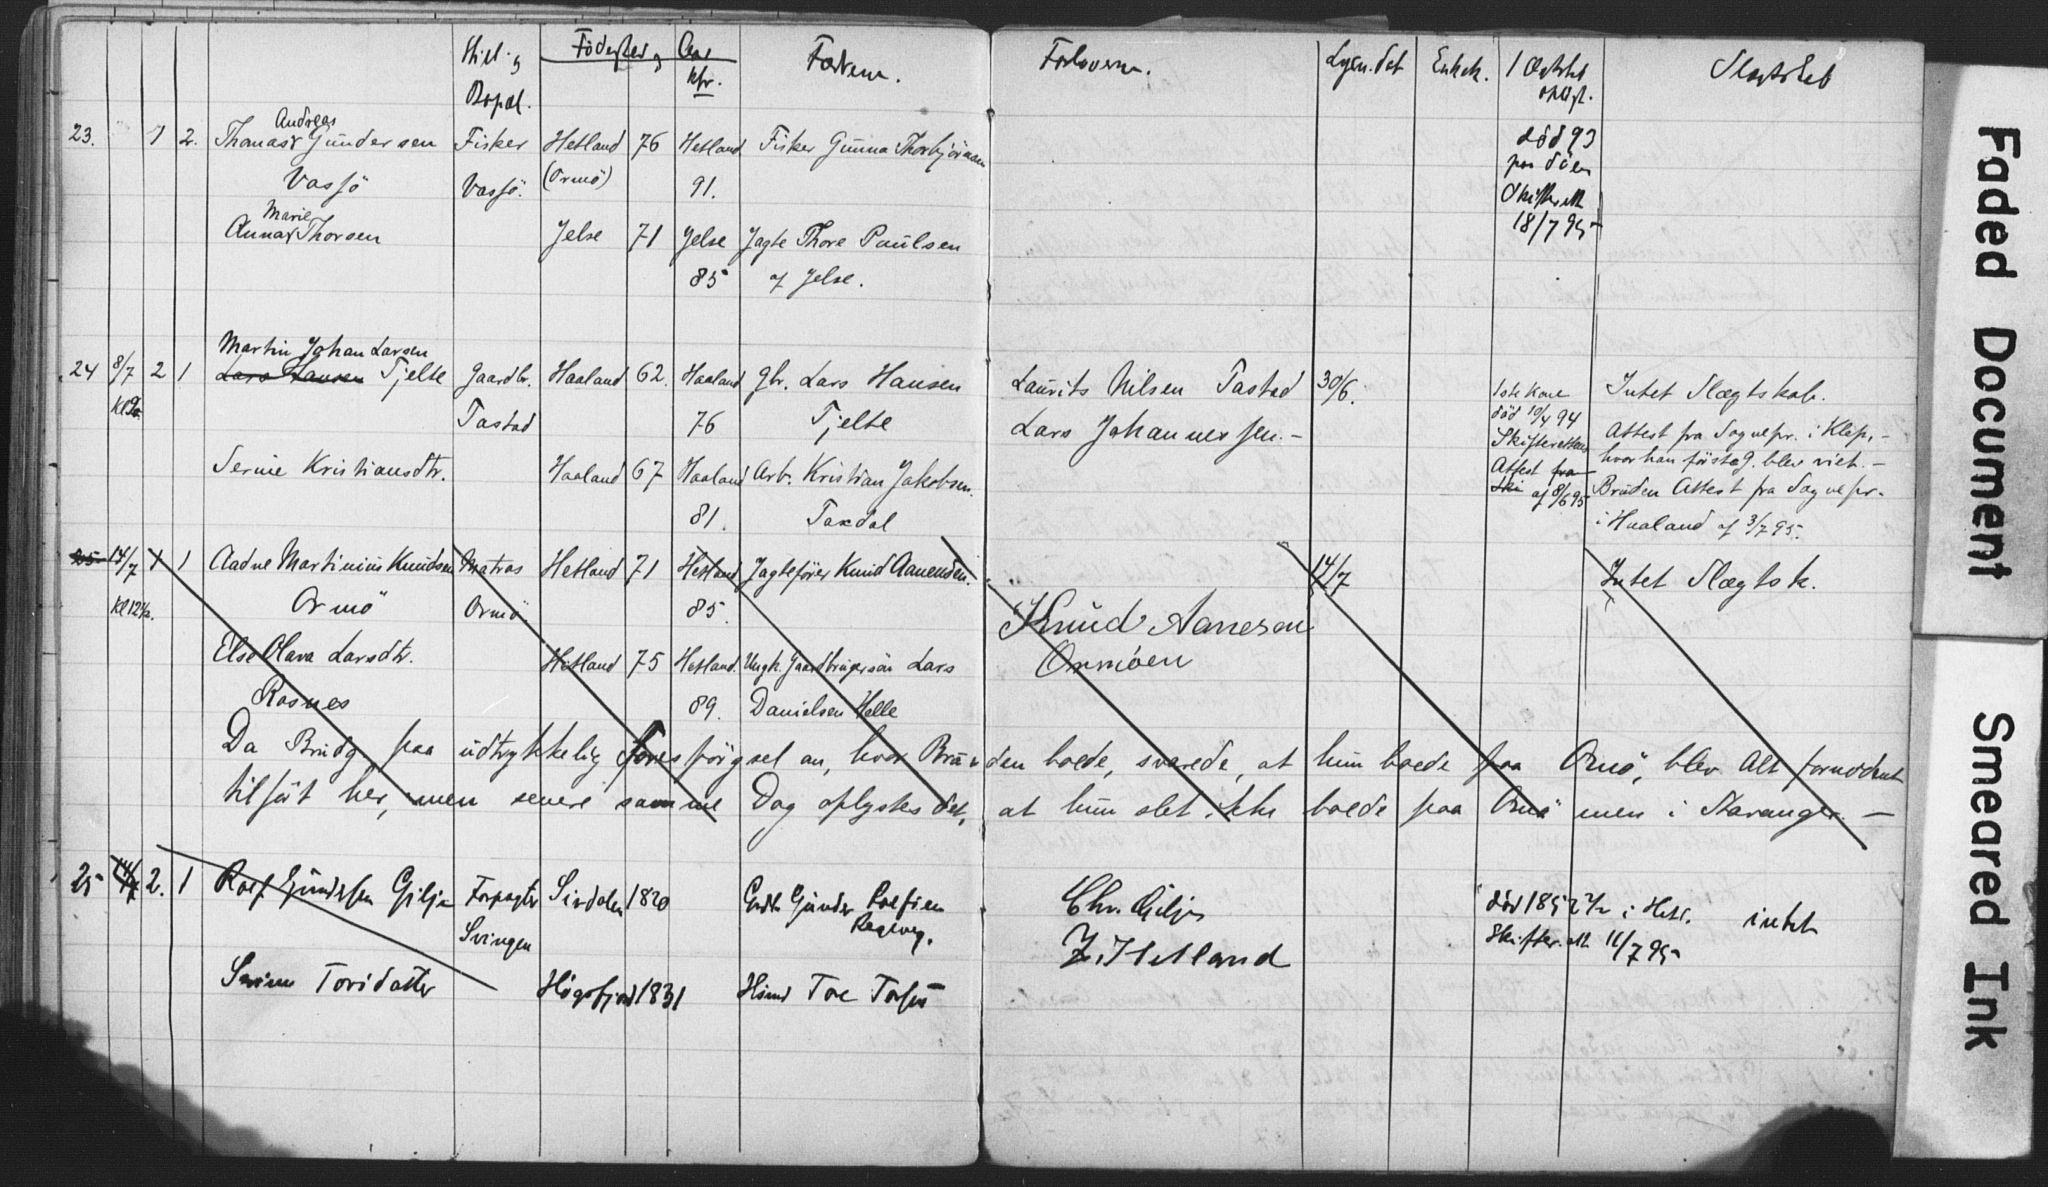 Stil. og
Bopæl.
Födested og Aar
kfr.
Fædrene.
Forloverne.
Lysn. dat
Enkek.
1 Ægtsk.
opløst.
Slægtskab
23. 1 2. Thomas Andreas Gundersen Fisker Hetland 76 Hetland Fisker Gunna Thorbjörnsen död 93
Vassö Vassö. (Ormö) 91. paa Söen
Skifteratt
18/7 95
Anna Marie Thorsen Jelse 71 Jelse Jagte Thore Paulsen
85 af Jelse.
Martin Johan Larsen
24 8/7 2 1 Lars Hansen Tjelte Gaardbr. Haaland 62. Haaland gbr. Lars Hansen Laurits Nilsen Tastad 30/6. 1ste Kone Intet Slægtskab.
Kl 9 Tastad 76 Tjelte Lars Johannessen. — död 10/4 94 Attest fra Sognepr. i Klep, —
Skifterettens hvor han förste G. blev viet. —
Serine Kristiansdtr. Haaland 67 Haaland Arb. Kristian Jakobsen. Attest fra Bruden Attest fra Sognepr.
81. Taxdal Ski af 8/6 95 i Haaland af 3/7 95.
25 14/7 1 1 Aadne Martinius Knudsen Matros Hetland 71 Hetland Jagtefører Knud Aanensen. 14/7 Intet Slægtsk.
Kl 12 1/2. Ormö Ormö. 85. Knud Aanesen
Else Olava Larsdtr. Hetland 75 Hetland. Ungk. Gaardbrugersön Lars Ormöen
Rosnes 89. Danielsen Helle
Da Brudg. paa udtrykkelig Forespörgsel an, hvor Bruden boede, svarede, at hun boede paa Ormö, blev Alt fornödent
tilfört her, men senere samme Dag oplystes det, at hun slet ikke boede paa Ormö men i Stavanger. —
25 14/7 2. 1 Gilje Forpagter Sirdalen 1820 Gunder Chr. Gilje död 1852 i Hetl. intet
Svingen Z. Hetland Skifter.att 11/7 95
Serine Toridatter Högsfjord 1831 Husmd Tore
Faded Document
Smeared Ink